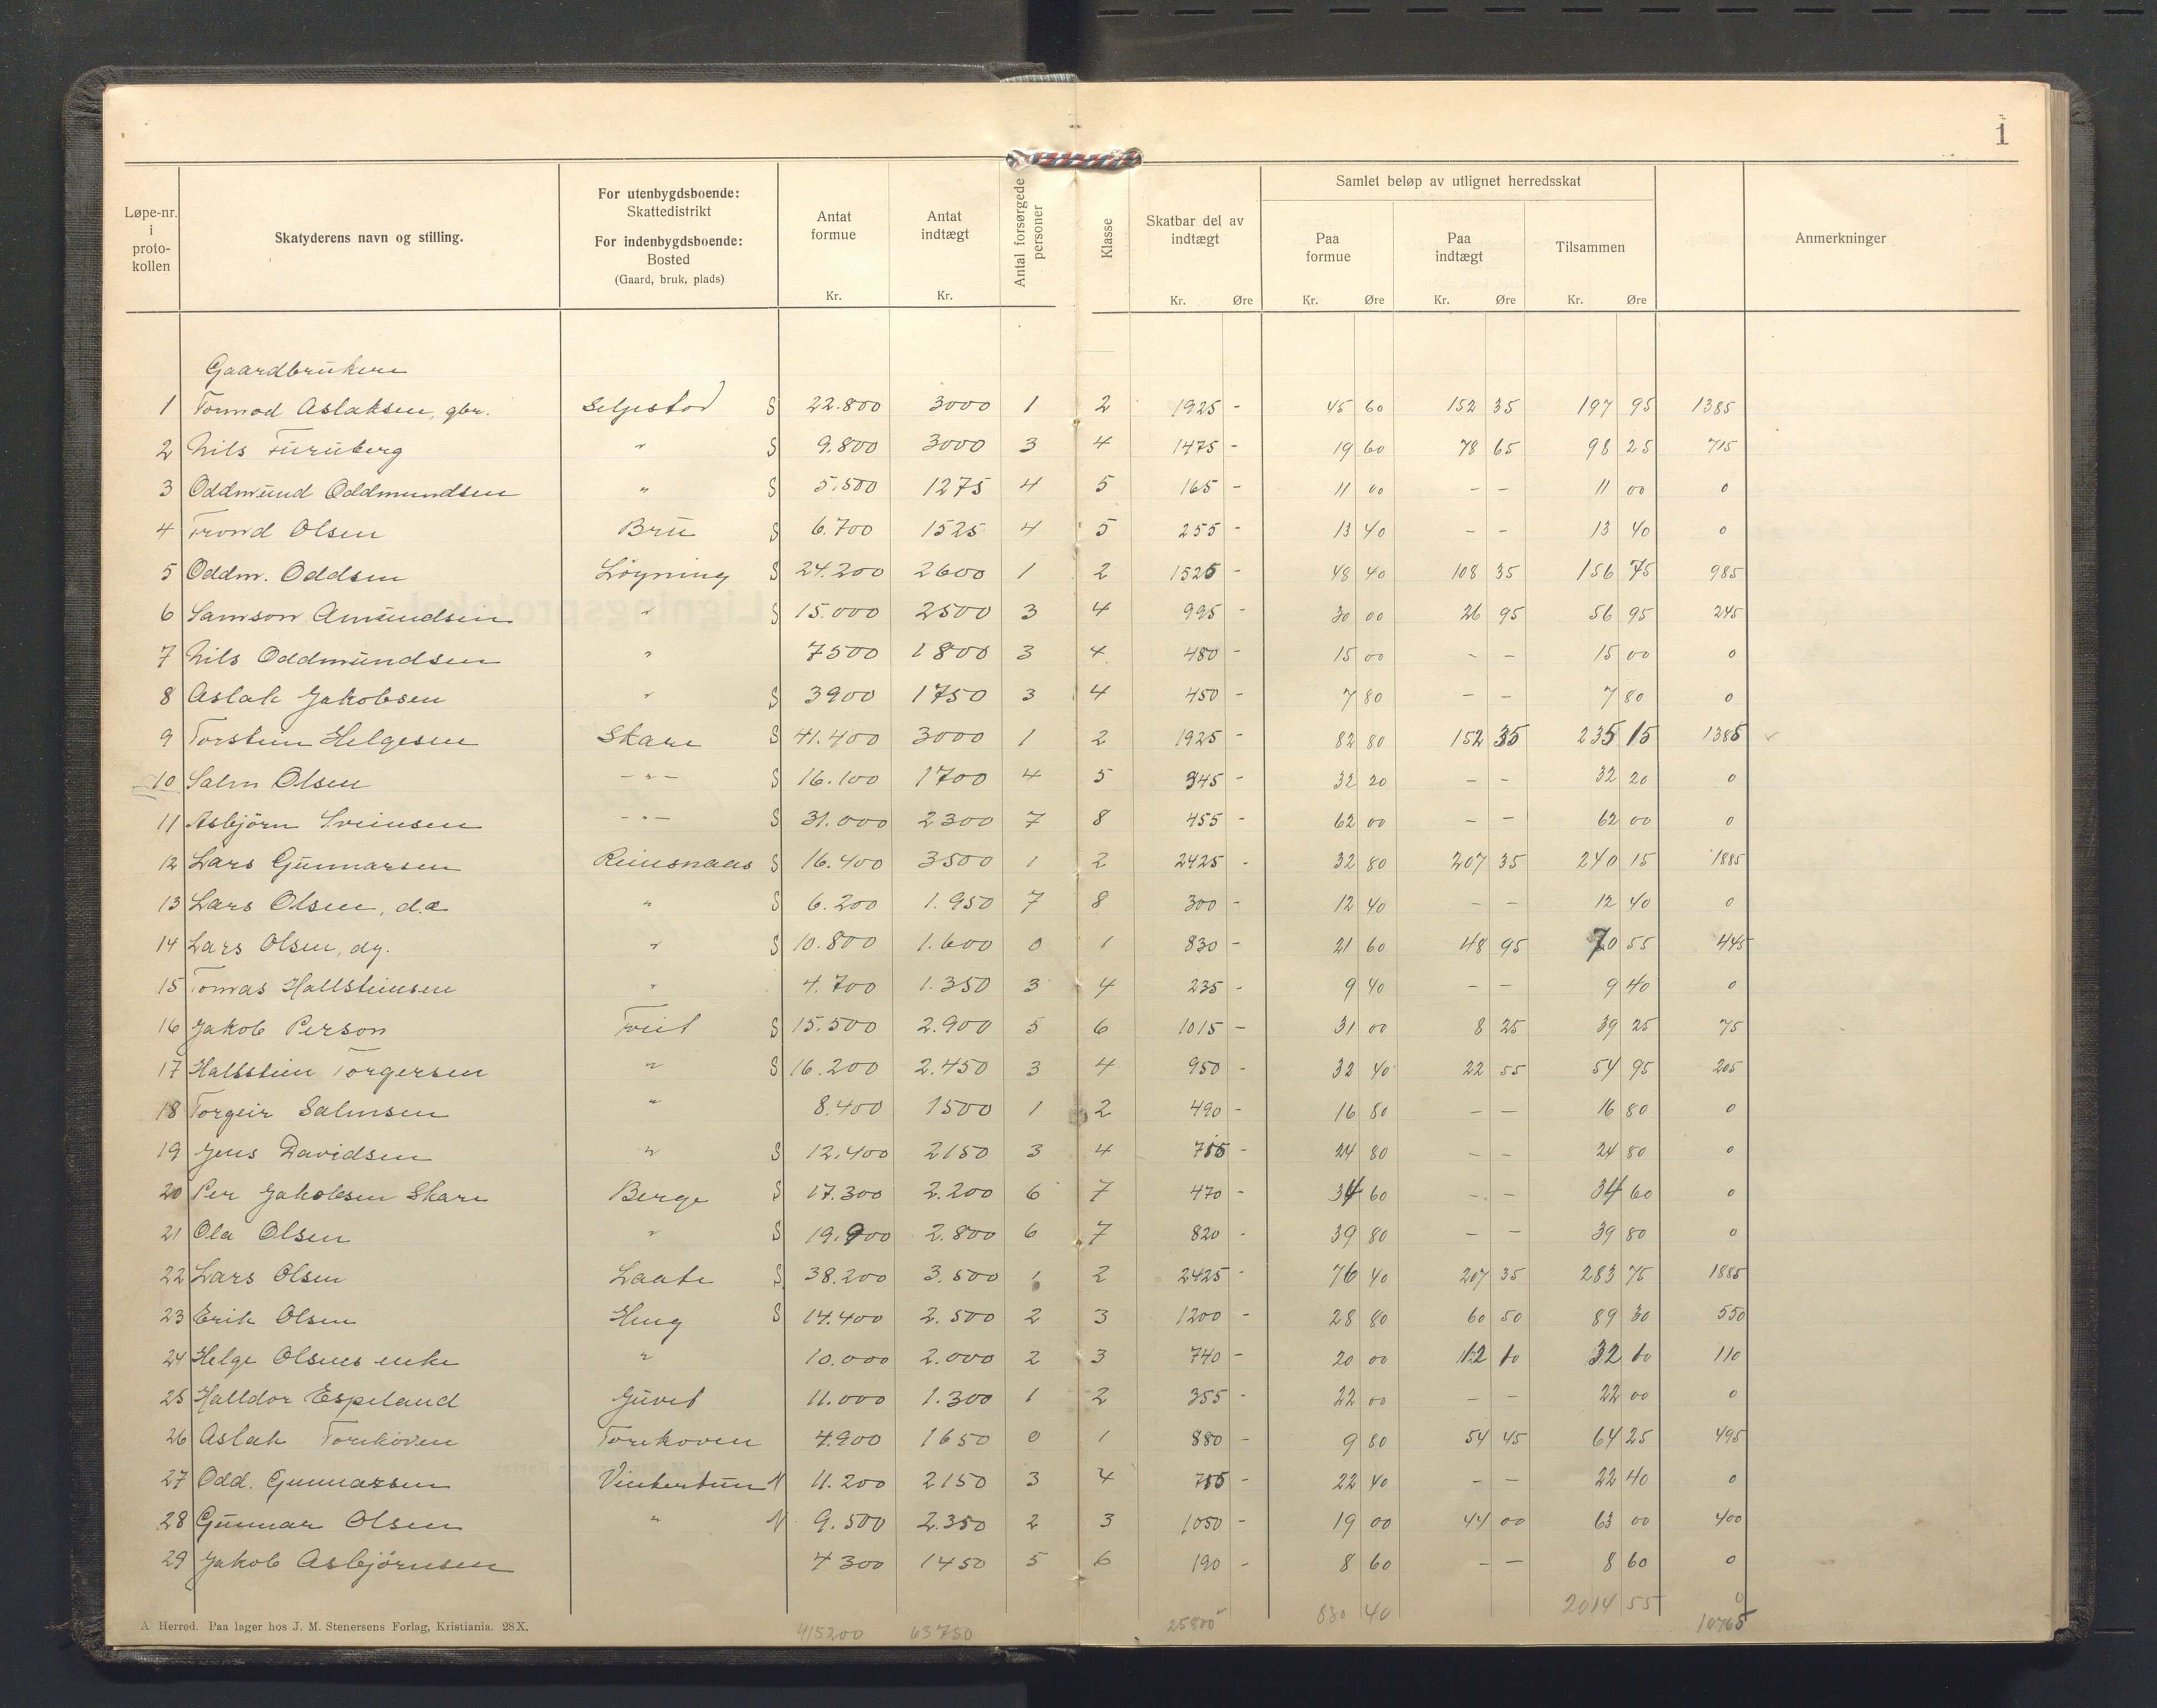 1
Løpe-nr. i proto-kollen
Skatyderens navn og stilling.
For utenbygdsboende: Skattedistrikt
For indenbygdsboende: Bosted (Gaard, bruk, plads)
Antat formue Kr.
Antat indtægt Kr.
Antal forsørgede personer
Klasse
Skatbar del av indtægt Kr. Øre
Samlet beløp av utlignet herredsskat
Paa formue Kr. Øre
Paa indtægt Kr. Øre
Tilsammen Kr. Øre
Anmerkninger
Gaardbrukere
1 Tormod Aslaksen, gbr. Seljestad S 22.800 3000 1 2 1925 - 45 60 152 35 197 95 1385
2 Nils Furuberg " S 9.800 3000 3 4 1475 - 19 60 78 65 98 25 715
3 Oddmund Oddmundsen " S 5.500 1275 4 5 165 - 11 00 - - 11 00 0
4 Trond Olsen Bru S 6.700 1525 4 5 255 - 13 40 - - 13 40 0
5 Oddm. Oddsen Løyning S 24.200 2600 1 2 1525 - 48 40 108 35 156 75 985
6 Samson Amundsen " S 15.000 2500 3 4 995 - 30 00 26 95 56 95 245
7 Nils Oddmundsen " 7500 1800 3 4 480 - 15 00 - - 15 00 0
8 Aslak Jakobsen " S 3900 1750 3 4 450 - 7 80 - - 7 80 0
9 Torstein Helgesen Skare S 41.400 3000 1 2 1925 - 82 80 152 35 235 15 1385
10 Salm Olsen - " - S 16.100 1700 4 5 345 - 32 20 - - 32 20 0
11 Asbjörn Sveinsen - " - S 31.000 2300 7 8 455 - 62 00 - - 62 00 0
12 Lars Gunnarsen Reinsnaas S 16.400 3500 1 2 2425 - 32 80 207 35 240 15 1885
13 Lars Olsen, d.æ " S 6.200 1.950 7 8 300 - 12 40 - - 12 40 0
14 Lars Olsen, dy. " S 10.800 1.600 0 1 830 - 21 60 48 95 70 55 445
15 Tomas Hallsteinsen " 4.700 1.350 3 4 235 - 9 40 - - 9 40 0
16 Jakob Person Tveit S 15.500 2.900 5 6 1015 - 31 00 8 25 39 25 75
17 Hallstein Torgersen " S 16.200 2.450 3 4 950 - 32 40 22 55 54 95 205
18 Torgeir Salmsen " 8.400 1500 1 2 490 - 16 80 - - 16 80 0
19 Jens Davidsen " S 12.400 2150 3 4 755 - 24 80 - - 24 80 0
20 Per Jakobsen Skare Berge S 17.300 2.200 6 7 470 - 34 60 - - 34 60 0
21 Ola Olsen " S 19.900 2.800 6 7 820 - 39 80 - - 39 80 0
22 Lars Olsen Laate S 38.200 3.500 1 2 2425 - 76 40 207 35 283 75 1885
23 Erik Olsen Heug S 14.400 2.500 2 3 1200 - 28 80 60 50 89 30 550
24 Helge Olsens enke " 10.000 2.000 2 3 740 - 20 00 12 10 32 10 110
25 Halldor Espeland Juvet 11.000 1.300 1 2 355 - 22 00 - - 22 00 0
26 Aslak Torekoven Torekoven 4.900 1650 0 1 880 - 9 80 54 45 64 25 495
27 Odd. Gunnarsen Vintertun N 11.200 2150 3 4 755 - 22 40 - - 22 40 0
28 Gunnar Olsen " N 9.500 2.350 2 3 1050 - 19 00 44 00 63 00 400
29 Jakob Asbjörnsen 4300 1450 5 6 190 - 8 60 - - 8 60 0
415200 63750 25800 830 40 2014 55 10765
A Herred. Paa lager hos J. M. Stenersens Forlag, Kristiania. 28X.